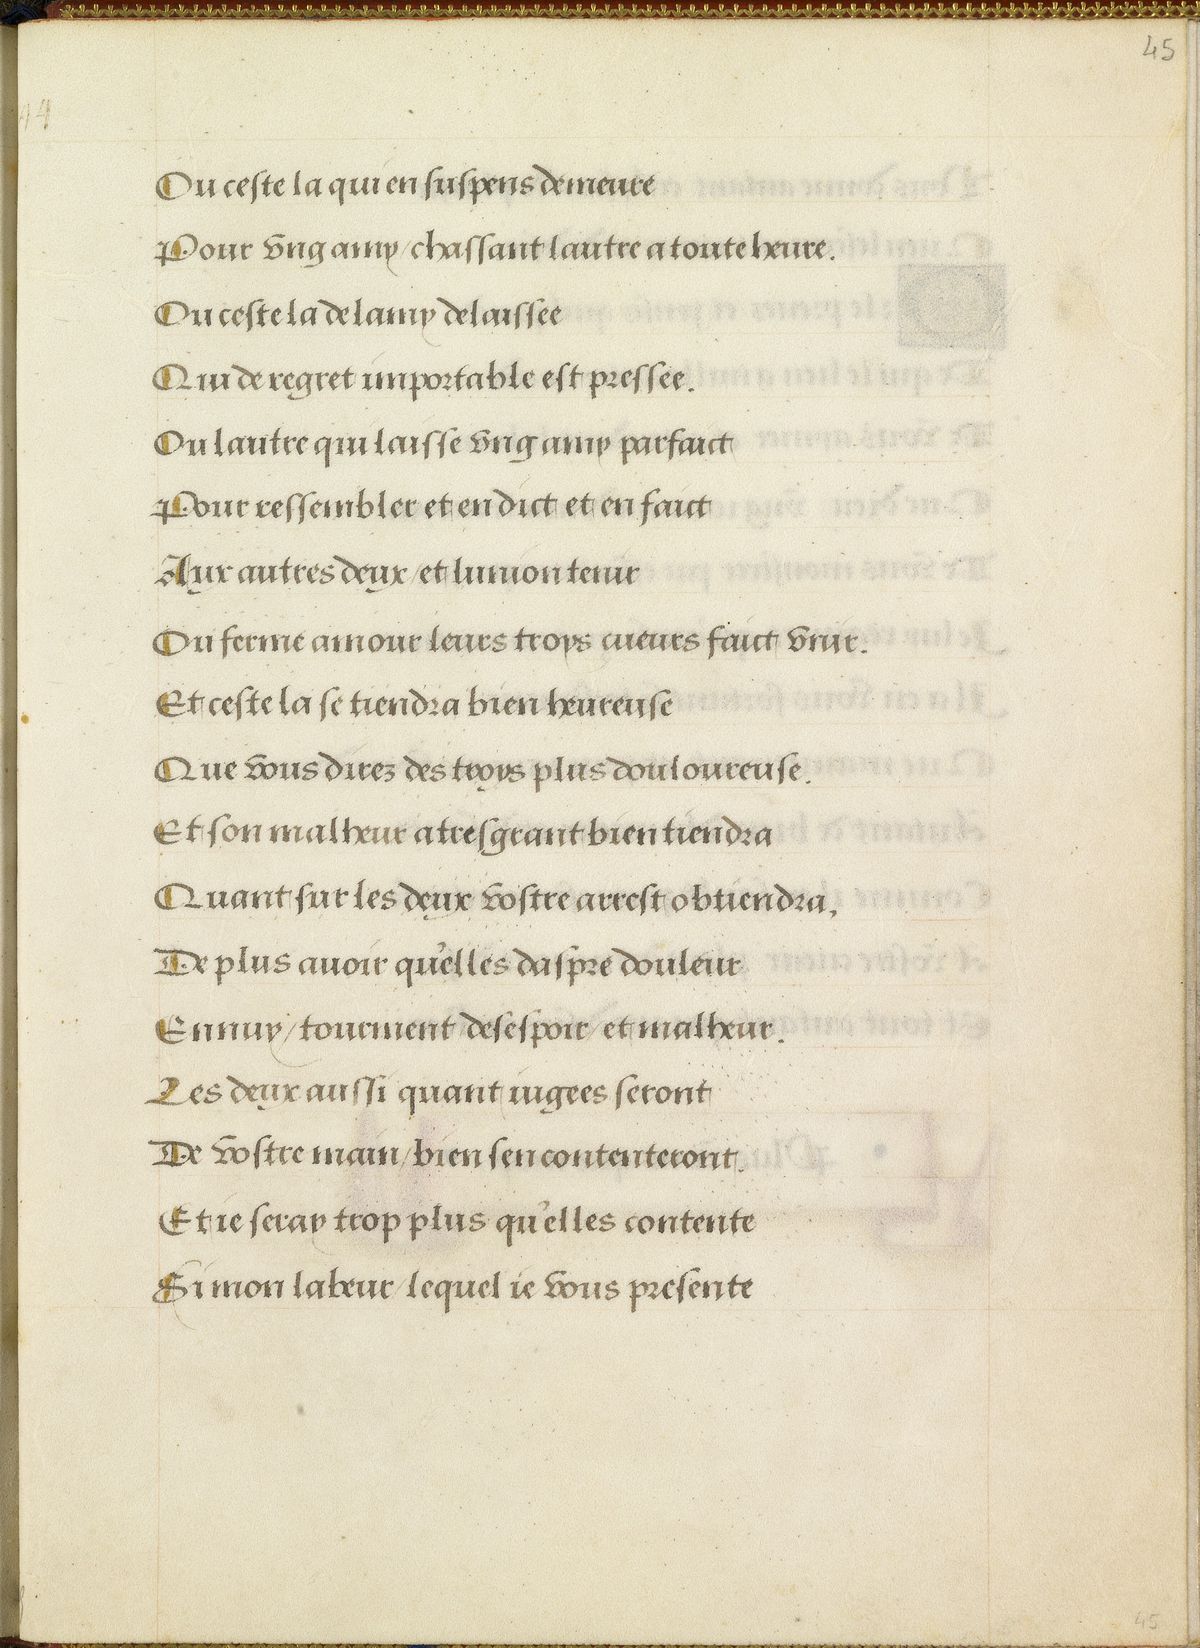 45
44
Ou ceste la qui en suspens demeure
Pour vng amy / chassant lautre a toute heure.
Ou ceste la de lamy delaissee
Qui de regret importable est pressee.
Ou lautre qui laisse vng amy parfaict
Pour ressembler et en dict et en faict
Aux autres deux / et lunion tenir
Ou ferme amour leurs troys cueurs faict vnir.
Et ceste la se tiendra bien heureuse
Que vous direz des troys plus douloureuse.
Et son malheur a tresgrant bien tiendra
Quant sur les deux vostre arrest obtiendra,
De plus auoir qu'elles daspre douleur
Ennuy / tourment desespoir / et malheur.
Les deux aussi quant iugees seront
De vostre main / bien sen contenteront.
Et ie seray trop plus qu'elles contente
Si mon labeur / lequel ie vous presente
45